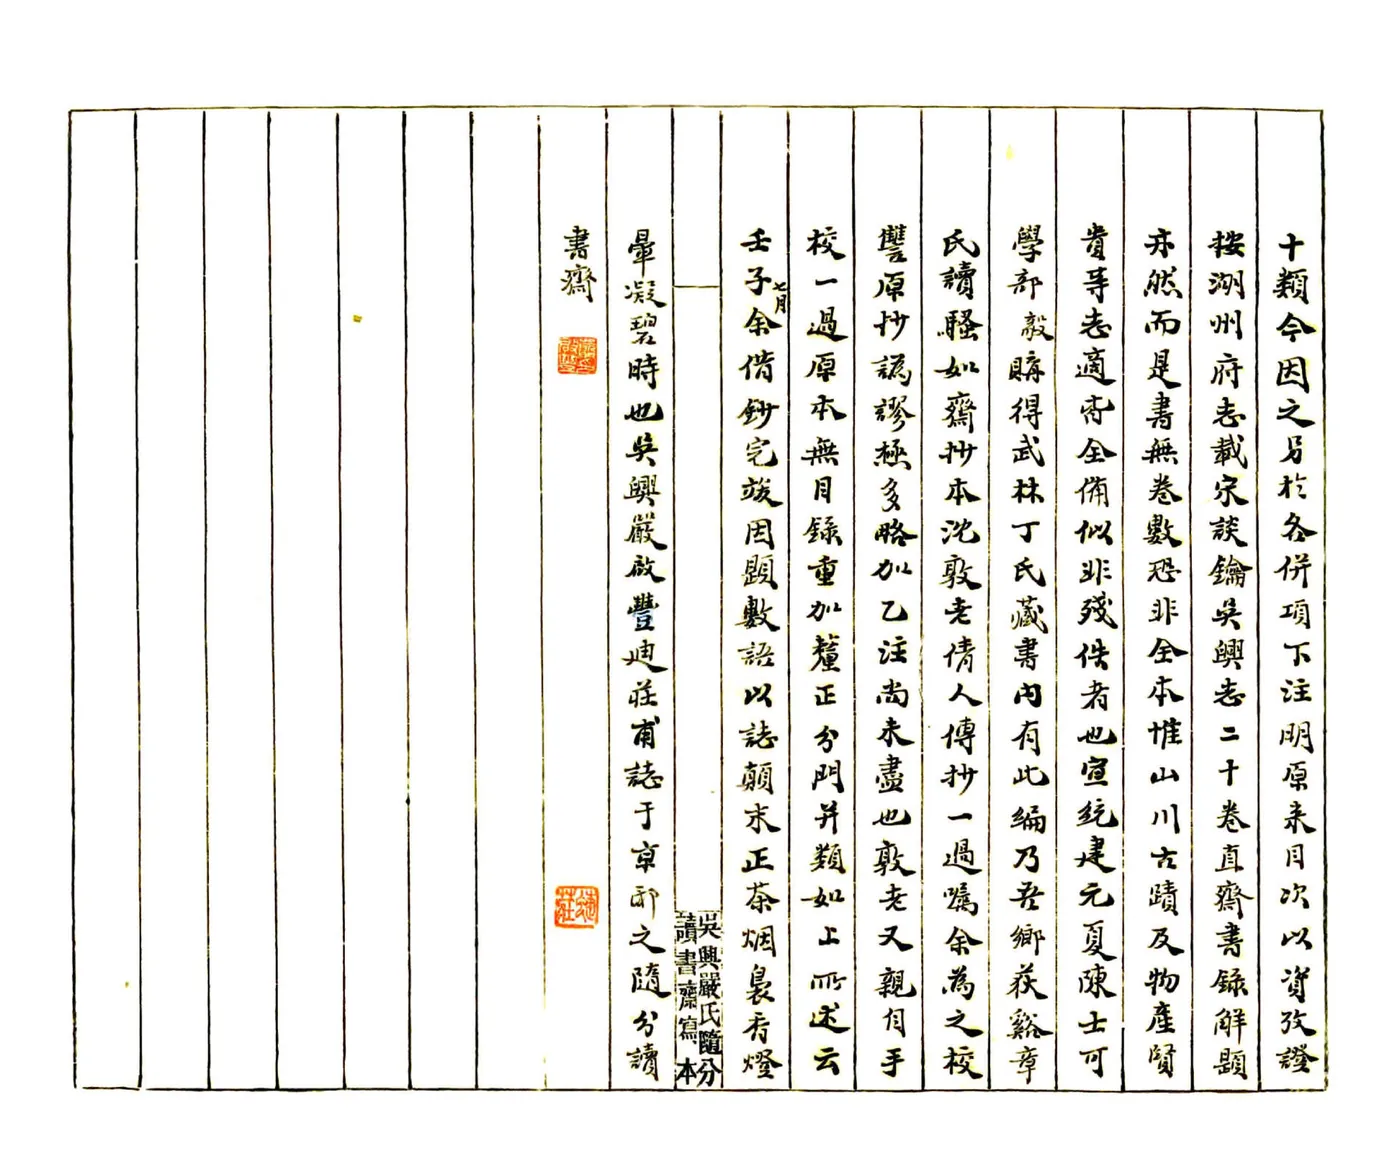 十類今因之另於各併項下注明原来目次以資攷證
按湖州府志載宋談鑰吳興志二十卷直齋書錄解題
亦然而是書無卷數恐非全本惟山川古蹟及物產賢
貴等志適皆全備似非殘佚者也宣統建元夏陳士可
學部毅購得武林丁氏藏書内有此編乃吾鄉荻谿章
氏讀騷如齋抄本沈敦老倩人傳抄一過嘱余為之校
讐原抄譌謬極多略加乙注尚未盡也敦老又親自手
校一過原本無目錄重加釐正分門并類如上所述云
壬子七月余借鈔完竣因題數語以誌顛末正茶烟裊香燈
吳興嚴氏隨分
讀書齋寫本
暈凝碧時也吳興嚴啟豐迪莊甫誌于京邸之隨分讀
書齋